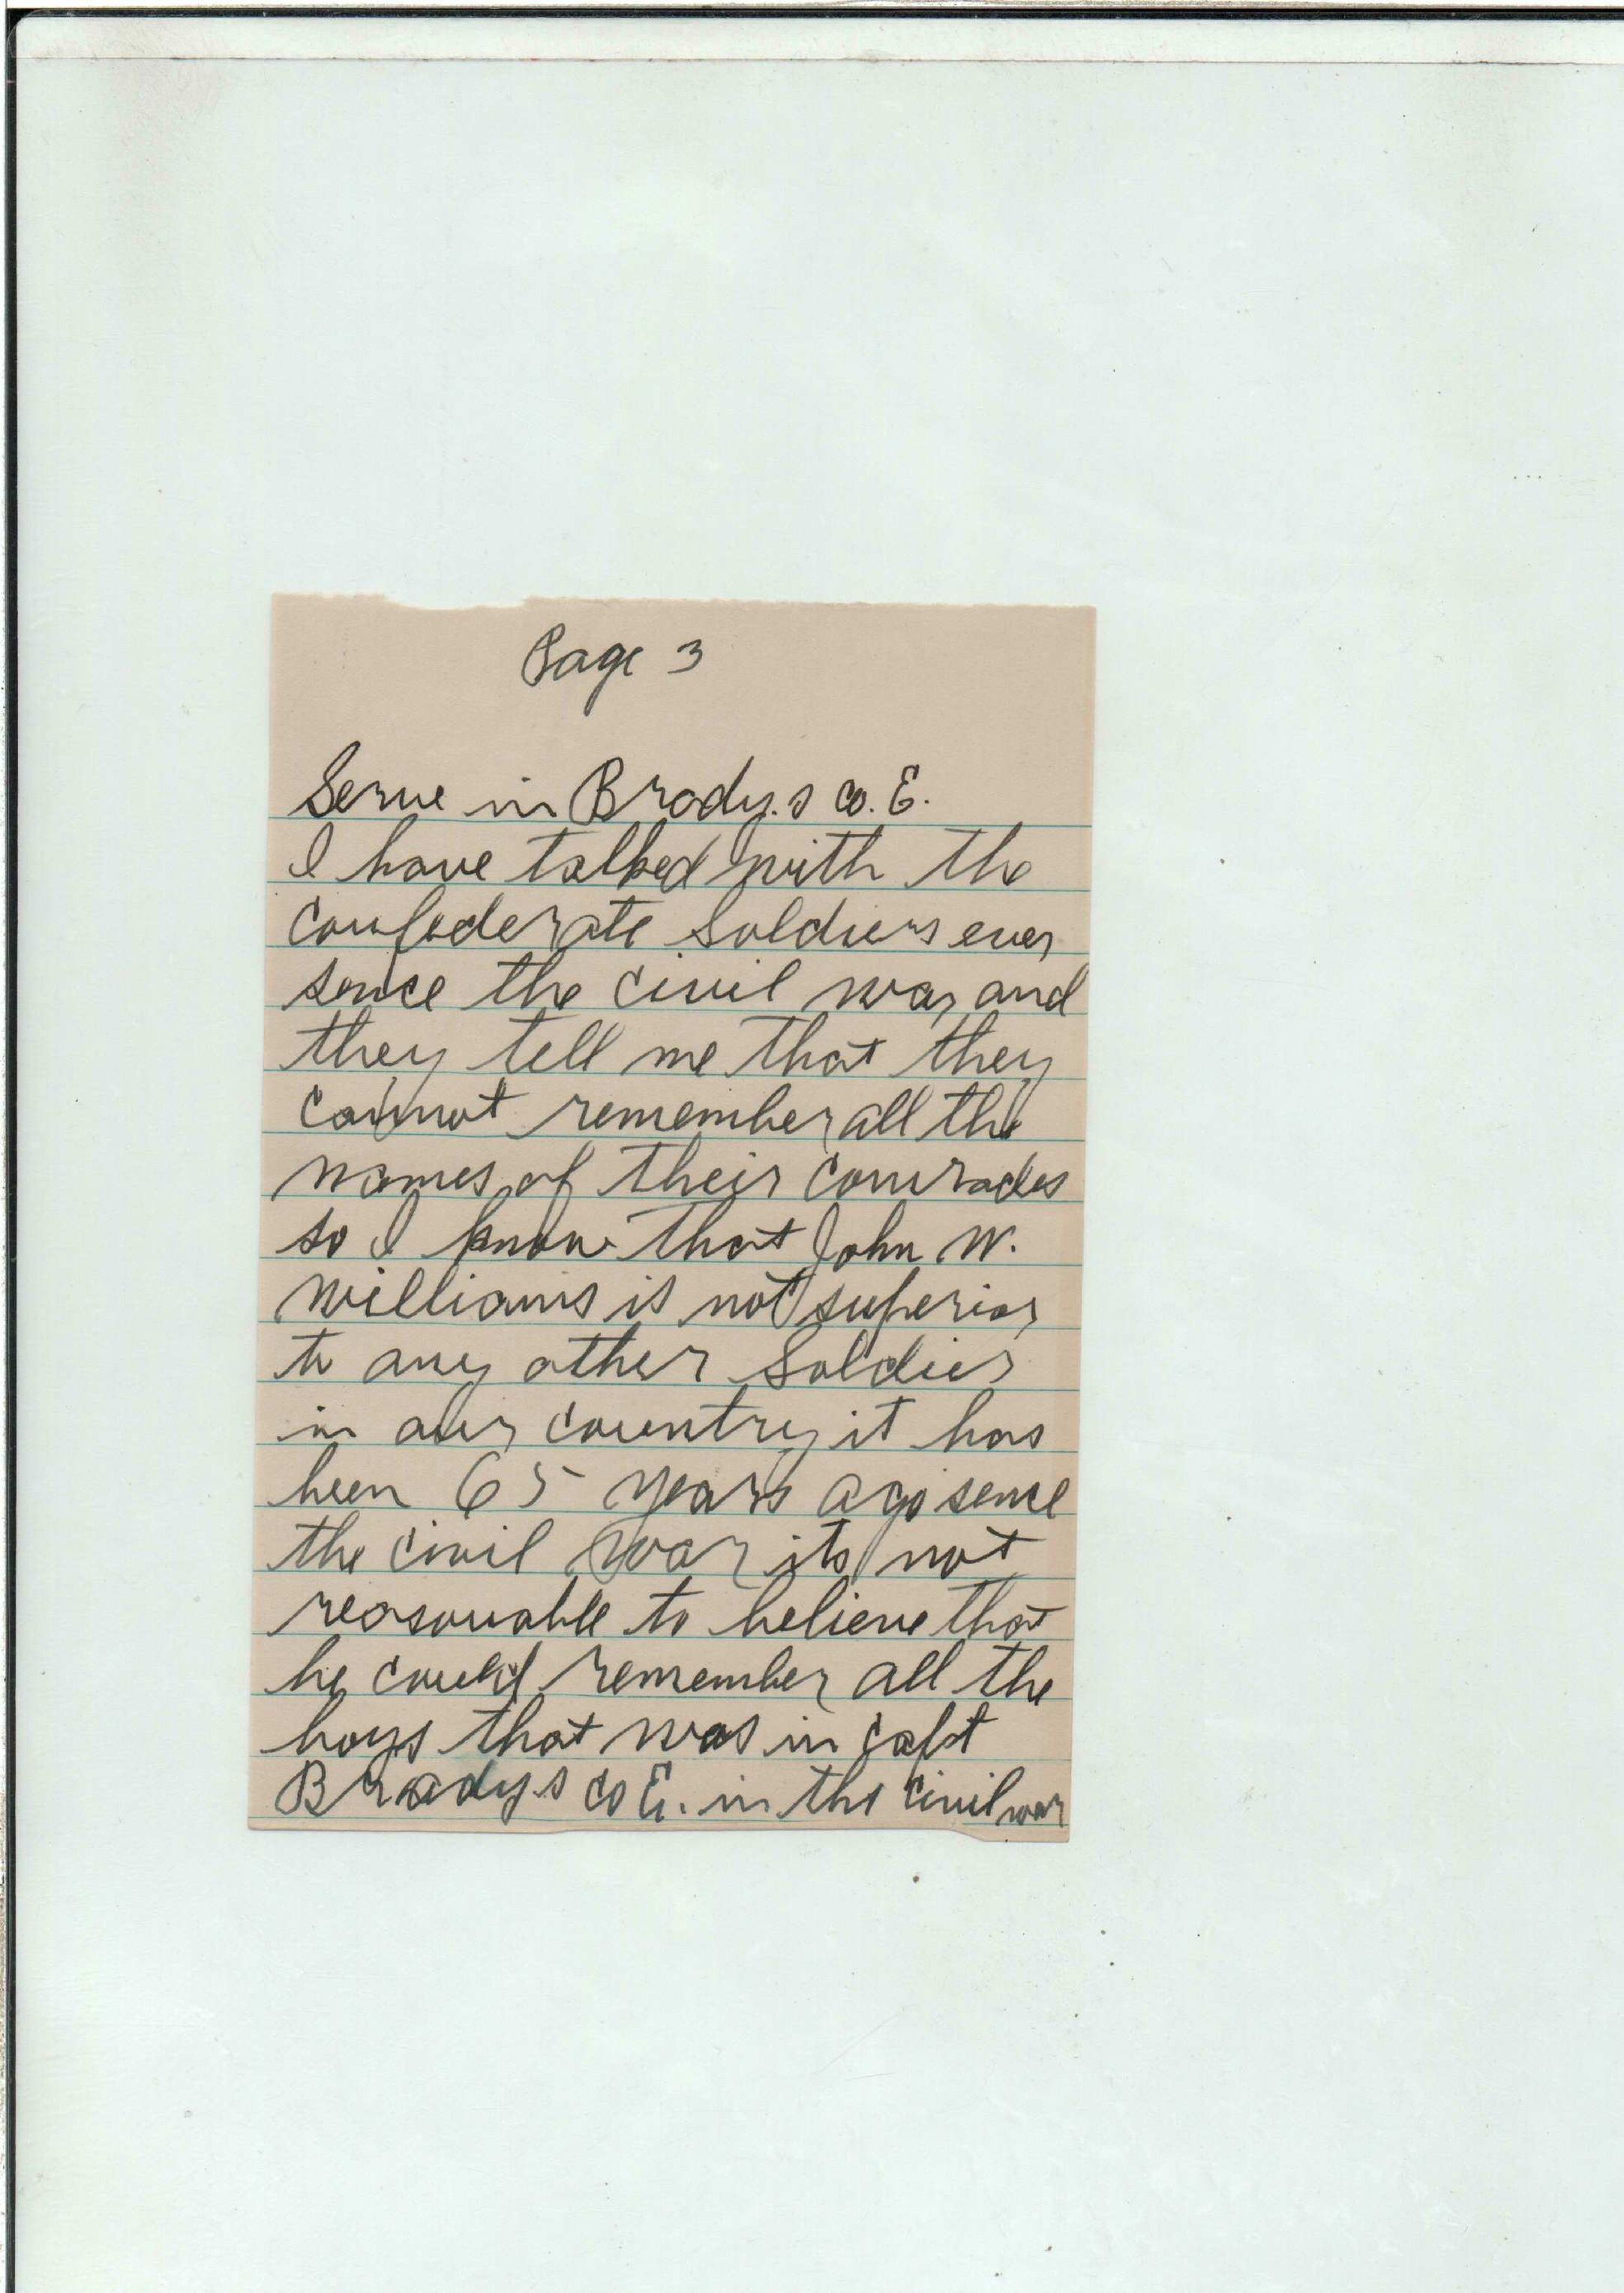 Page 3
Serve in Brady.s co. E.
I have talked with the
confederate soldiers ever
sence the civil war and
they tell me that they
cannot remember all the
names of their comrades
so I know that John W.
Williams is not superior
to any other soldier
in our country it has
been 65 years ago sence
the civil war its not
reasonable to believe that
he could remember all the
boys that was in capt
Bradys co E. in the civil war